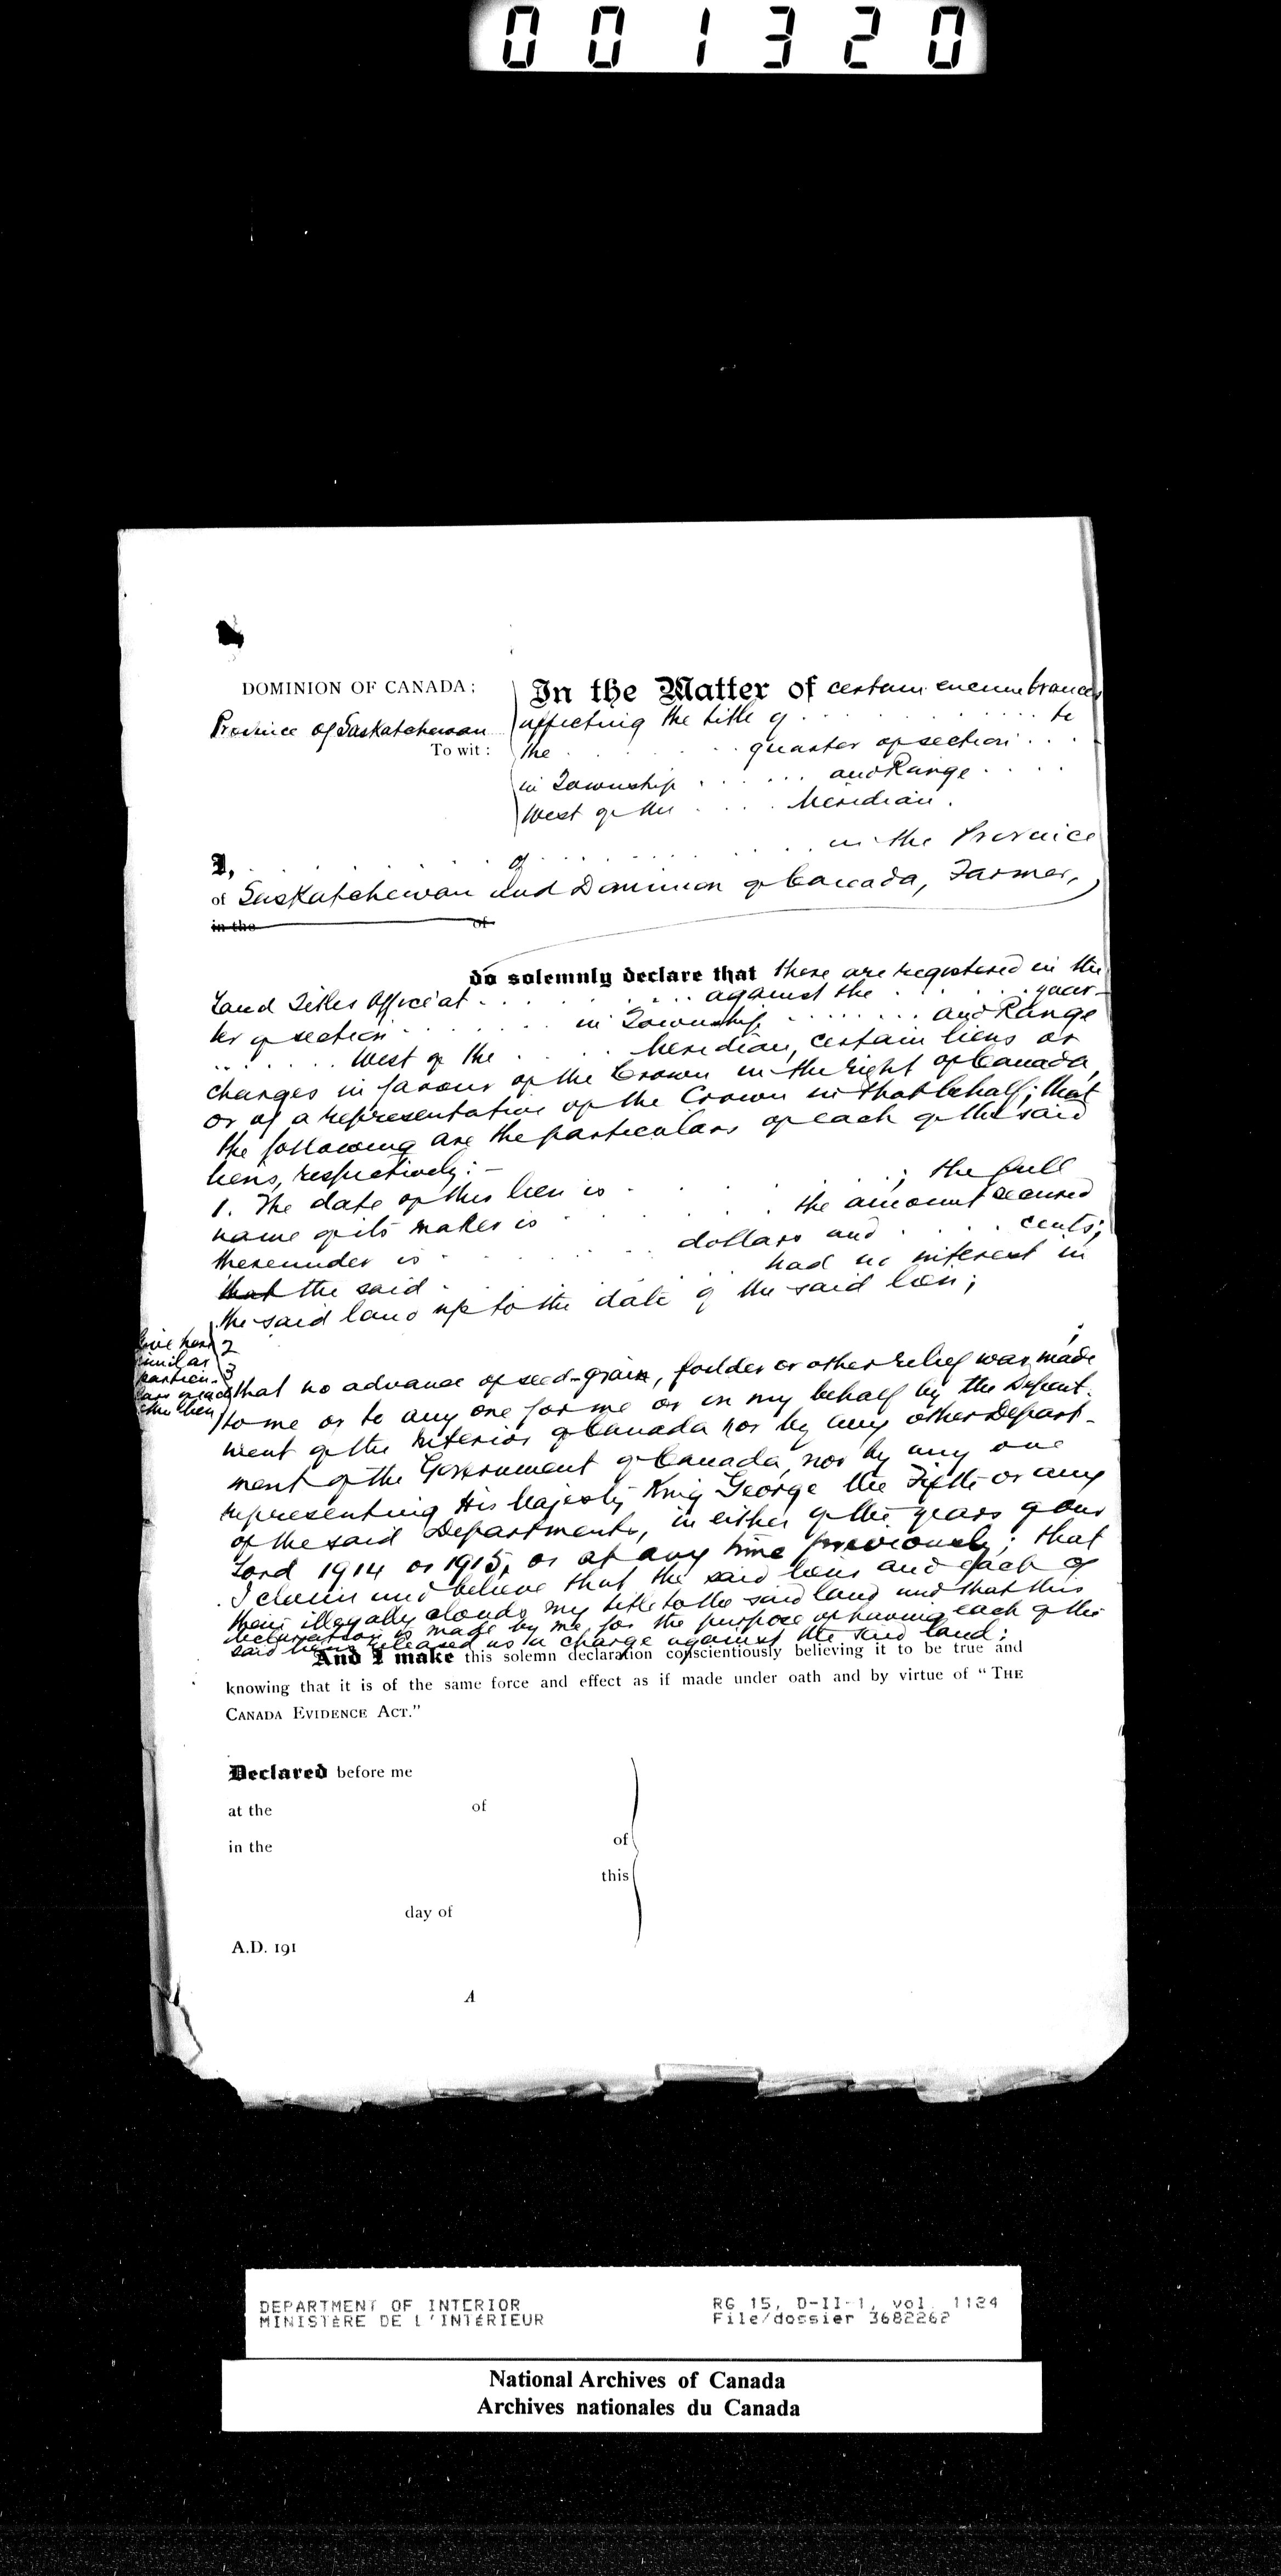 001320
DOMINION OF CANADA:
Province of Saskatchewan
To wit:
In the Matter of certain encumbrances
affecting the title of . . . . . . . . to
the . . . . . . quarter of section . . . .
in Township . . . . . . and Range . . . .
West of the . . . . Meridian.
I, . . . . . . . of . . . . . . . . . in the Province
of Saskatchewan and Dominion of Canada, Farmer,
in the of
do solemnly declare that there are registered in the
Land Titles Office at . . . . . . . . . against the . . . . . quar-
ter of section . . . . . . . in Township . . . . . . . and Range
. . . . . . . West of the . . . . . Meridian, certain liens or
charges in favour of the Crown in the right of Canada,
or of a representative of the Crown in that behalf; that
the following are the particulars of each of the said
liens, respectively:-
1. The date of this lien is . . . . . . . ; the full
name of its maker is . . . . . . . the amount secured
thereunder is . . . . . . . dollars and . . . . cents;
that the said . . . . . . . . had no interest in
the said land up to the date of the said lien;
Give here
similar
particu-
lars of each
other lien
2
3
that no advance of seed-grain, fodder or other relief was made
to me or to any one for me or in my behalf by the Depart-
ment of the Interior of Canada nor by any other Depart-
ment of the Government of Canada, nor by any one
representing His Majesty King George the Fifth or any
of the said Departments, in either of the years of our
Lord 1914 or 1915, or at any time previously; that
I claim and believe that the said liens and each of
them illegally clouds my title to the said land and that this
declaration is made by me, for the purpose of having each of the
said liens released as a charge against the said land;
And I make this solemn declaration conscientiously believing it to be true and
knowing that it is of the same force and effect as if made under oath and by virtue of "THE
CANADA EVIDENCE ACT."
Declared before me
at the of
in the of
this
day of
A.D. 191
A
DEPARTMENT OF INTERIOR
MINISTÈRE DE L'INTÉRIEUR
RG 15, D-II-1, vol. 1124
File/dossier 3682262
National Archives of Canada
Archives nationales du Canada